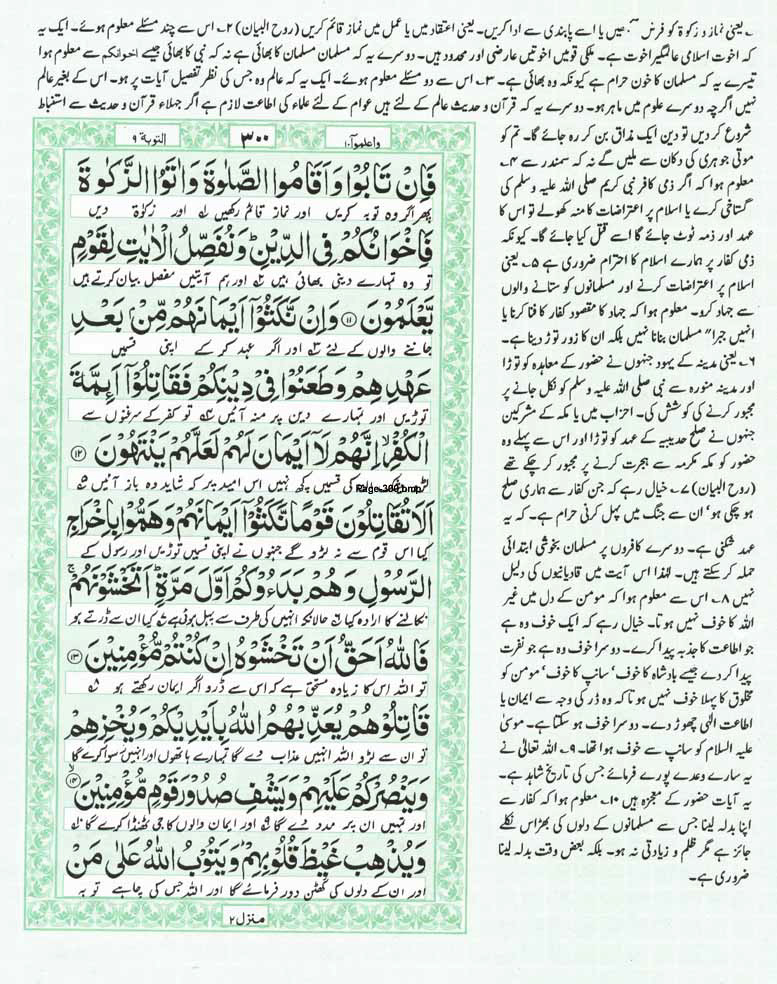 ۱۔ یعنی نماز و زکوٰۃ کو فرض سمجھیں یا اسے پابندی سے ادا کریں۔ یعنی اعتقاد میں یا عمل میں نماز قائم کریں (روح البیان) ۲۔ اس سے چند مسئلے معلوم ہوئے۔ ایک یہ
کہ اخوت اسلامی عالمگیر اخوت ہے۔ ملکی قومیں اخوتیں عارضی اور محدود ہیں۔ دوسرے یہ کہ مسلمان مسلمان کا بھائی ہے نہ کہ نبی کا بھائی جیسے اخوانکم سے معلوم ہوا
تیسرے یہ کہ مسلمان کا خون حرام ہے کیونکہ وہ بھائی ہے۔ ۳۔ اس سے دو مسئلے معلوم ہوئے۔ ایک یہ کہ عالم وہ جس کی نظر تفصیل آیات پر ہو۔ اس کے بغیر عالم
نہیں اگرچہ دوسرے علوم میں ماہر ہو۔ دوسرے یہ کہ قرآن و حدیث عالم کے لئے ہیں عوام کے لئے علماء کی اطاعت لازم ہے اگر جہلاء قرآن و حدیث سے استنباط
شروع کر دیں تو دین ایک مذاق بن کر رہ جائے گا۔ تم کو
موتی جوہری کی دکان سے ملیں گے نہ کہ سمندر سے ۴۔
معلوم ہوا کہ اگر ذمی کافر نبی کریم صلی اللہ علیہ وسلم کی
گستاخی کرے یا اسلام پر اعتراضات کا منہ کھولے تو اس کا
عہد اور ذمہ ٹوٹ جائے گا اسے قتل کیا جائے گا۔ کیونکہ
ذمی کفار پر ہمارے اسلام کا احترام ضروری ہے ۵۔ یعنی
اسلام پر اعتراضات کرنے اور مسلمانوں کو ستانے والوں
سے جہاد کرو۔ معلوم ہوا کہ جہاد کا مقصود کفار کا فنا کرنا یا
انہیں جبراً مسلمان بنانا نہیں بلکہ ان کا زور توڑ دینا ہے۔
۶۔ یعنی مدینہ کے یہود جنہوں نے حضور کے معاہدہ کو توڑا
اور مدینہ منورہ سے نبی صلی اللہ علیہ وسلم کو نکل جانے پر
مجبور کرنے کی کوشش کی۔ احزاب میں یا مکہ کے مشرکین
جنہوں نے صلح حدیبیہ کے عہد کو توڑا اور اس سے پہلے وہ
حضور کو مکہ مکرمہ سے ہجرت کرنے پر مجبور کر چکے تھے
(روح البیان) ۷۔ خیال رہے کہ جن کفار سے ہماری صلح
ہو چکی ہو ان سے جنگ میں پہل کرنی حرام ہے۔ کہ یہ
عہد شکنی ہے۔ دوسرے کافروں پر مسلمان بخوشی ابتدائی
حملہ کر سکتے ہیں۔ لہٰذا اس آیت میں قادیانیوں کی دلیل
نہیں ۸۔ اس سے معلوم ہوا کہ مومن کے دل میں غیر
اللہ کا خوف نہیں ہوتا۔ خیال رہے کہ ایک خوف وہ ہے
جو اطاعت کا جذبہ پیدا کرے۔ دوسرا خوف وہ ہے جو نفرت
پیدا کر دے جیسے بادشاہ کا خوف، سانپ کا خوف، مومن کو
مخلوق کا پہلا خوف نہیں ہوتا کہ وہ ڈر کی وجہ سے ایمان یا
اطاعت الٰہی چھوڑ دے۔ دوسرا خوف ہو سکتا ہے۔ موسیٰ
علیہ السلام کو سانپ سے خوف ہوا تھا۔ ۹۔ اللہ تعالیٰ نے
یہ سارے وعدے پورے فرمائے جس کی تاریخ شاہد ہے۔
یہ آیات حضور کے معجزہ ہیں ۱۰۔ معلوم ہوا کہ کفار سے
اپنا بدلہ لینا جس سے مسلمانوں کے دلوں کی بھڑاس نکلے
جائز ہے مگر ظلم و زیادتی نہ ہو۔ بلکہ بعض وقت بدلہ لینا
ضروری ہے۔
واعلموا ۱۰ ۳۰۰ التوبۃ ۹
فَاِنْ تَابُوْا وَاَقَامُوا الصَّلٰوةَ وَاٰتَوُا الزَّكٰوةَ
پھر اگر وہ توبہ کریں اور نماز قائم رکھیں اور زکوٰۃ دیں
فَاِخْوَانُكُمْ فِی الدِّیْنِ ؕ وَنُفَصِّلُ الْاٰیٰتِ لِقَوْمٍ
تو وہ تمہارے دینی بھائی ہیں اور ہم آیتیں مفصل بیان کرتے ہیں
یَّعْلَمُوْنَ ۝۱۱ وَاِنْ نَّكَثُوْۤا اَیْمَانَهُمْ مِّنْۢ بَعْدِ
جاننے والوں کے لئے اور اگر عہد کر کے اپنی قسمیں
عَهْدِهِمْ وَطَعَنُوْا فِیْ دِیْنِكُمْ فَقَاتِلُوْۤا اَىِٕمَّةَ
توڑیں اور تمہارے دین پر منہ آئیں تو کفر کے سرغنوں سے
الْكُفْرِ ۙ اِنَّهُمْ لَاۤ اَیْمَانَ لَهُمْ لَعَلَّهُمْ یَنْتَهُوْنَ ۝۱۲
کی قسمیں کچھ نہیں اس امید پر کہ شاید وہ باز آئیں
Page-300.bmp
اَلَا تُقَاتِلُوْنَ قَوْمًا نَّكَثُوْۤا اَیْمَانَهُمْ وَهَمُّوْا بِاِخْرَاجِ
کیا اس قوم سے نہ لڑو گے جنہوں نے اپنی قسمیں توڑیں اور رسول کے
الرَّسُوْلِ وَهُمْ بَدَءُوْكُمْ اَوَّلَ مَرَّةٍ ؕ اَتَخْشَوْنَهُمْ ۚ
نکالنے کا ارادہ کیا حالانکہ انہیں کی طرف سے پہل ہوئی ہے کیا ان سے ڈرتے ہو
فَاللّٰهُ اَحَقُّ اَنْ تَخْشَوْهُ اِنْ كُنْتُمْ مُّؤْمِنِیْنَ ۝۱۳
تو اللہ اس کا زیادہ مستحق ہے کہ اس سے ڈرو اگر ایمان رکھتے ہو
قَاتِلُوْهُمْ یُعَذِّبْهُمُ اللّٰهُ بِاَیْدِیْكُمْ وَیُخْزِهِمْ
تو ان سے لڑو اللہ انہیں عذاب دے گا تمہارے ہاتھوں اور انہیں رسوا کرے گا
وَیَنْصُرْكُمْ عَلَیْهِمْ وَیَشْفِ صُدُوْرَ قَوْمٍ مُّؤْمِنِیْنَ ۝۱۴
اور تمہیں ان پر مدد دے گا اور ایمان والوں کا جی ٹھنڈا کرے گا
وَیُذْهِبْ غَیْظَ قُلُوْبِهِمْ ؕ وَیَتُوْبُ اللّٰهُ عَلٰى مَنْ
اور ان کے دلوں کی گھٹن دور فرمائے گا اور اللہ جس کی چاہے توبہ
منزل ۲